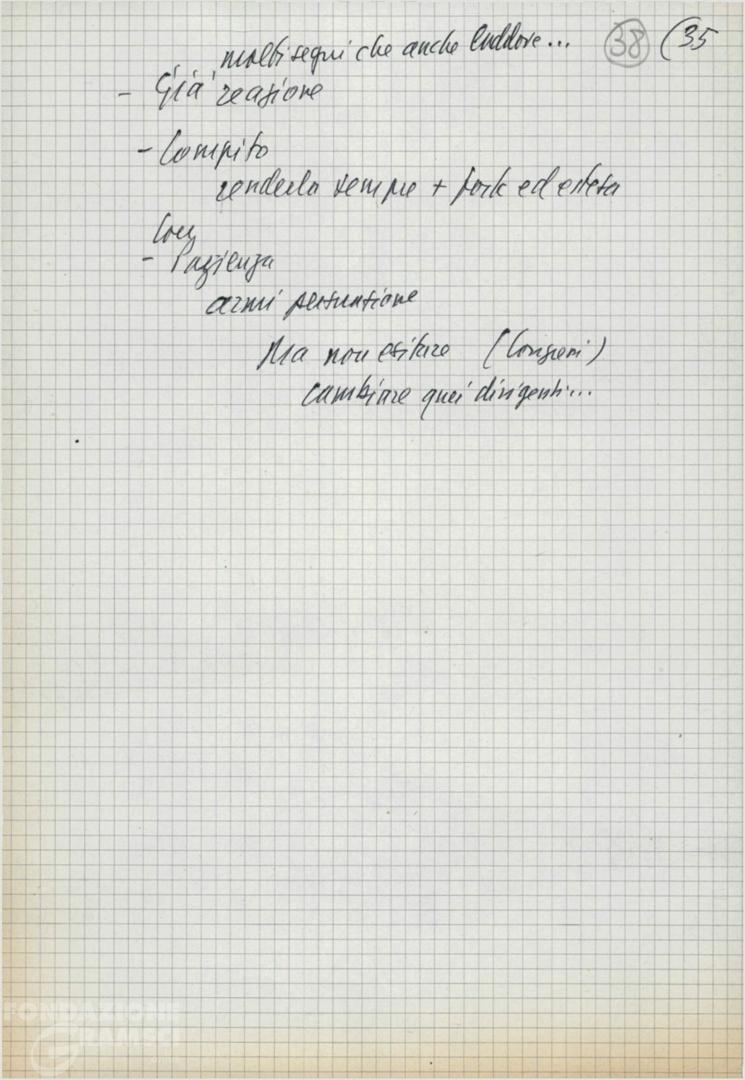 molti segni che anche laddove... 38 (35
- Già reazione
- Compito
renderla sempre + forte ed estesa
Con
- Pazienza
armi persuasione
Ma non esitare (Congressi)
cambiare quei dirigenti...
FONDAZIONE
GRAMSCI